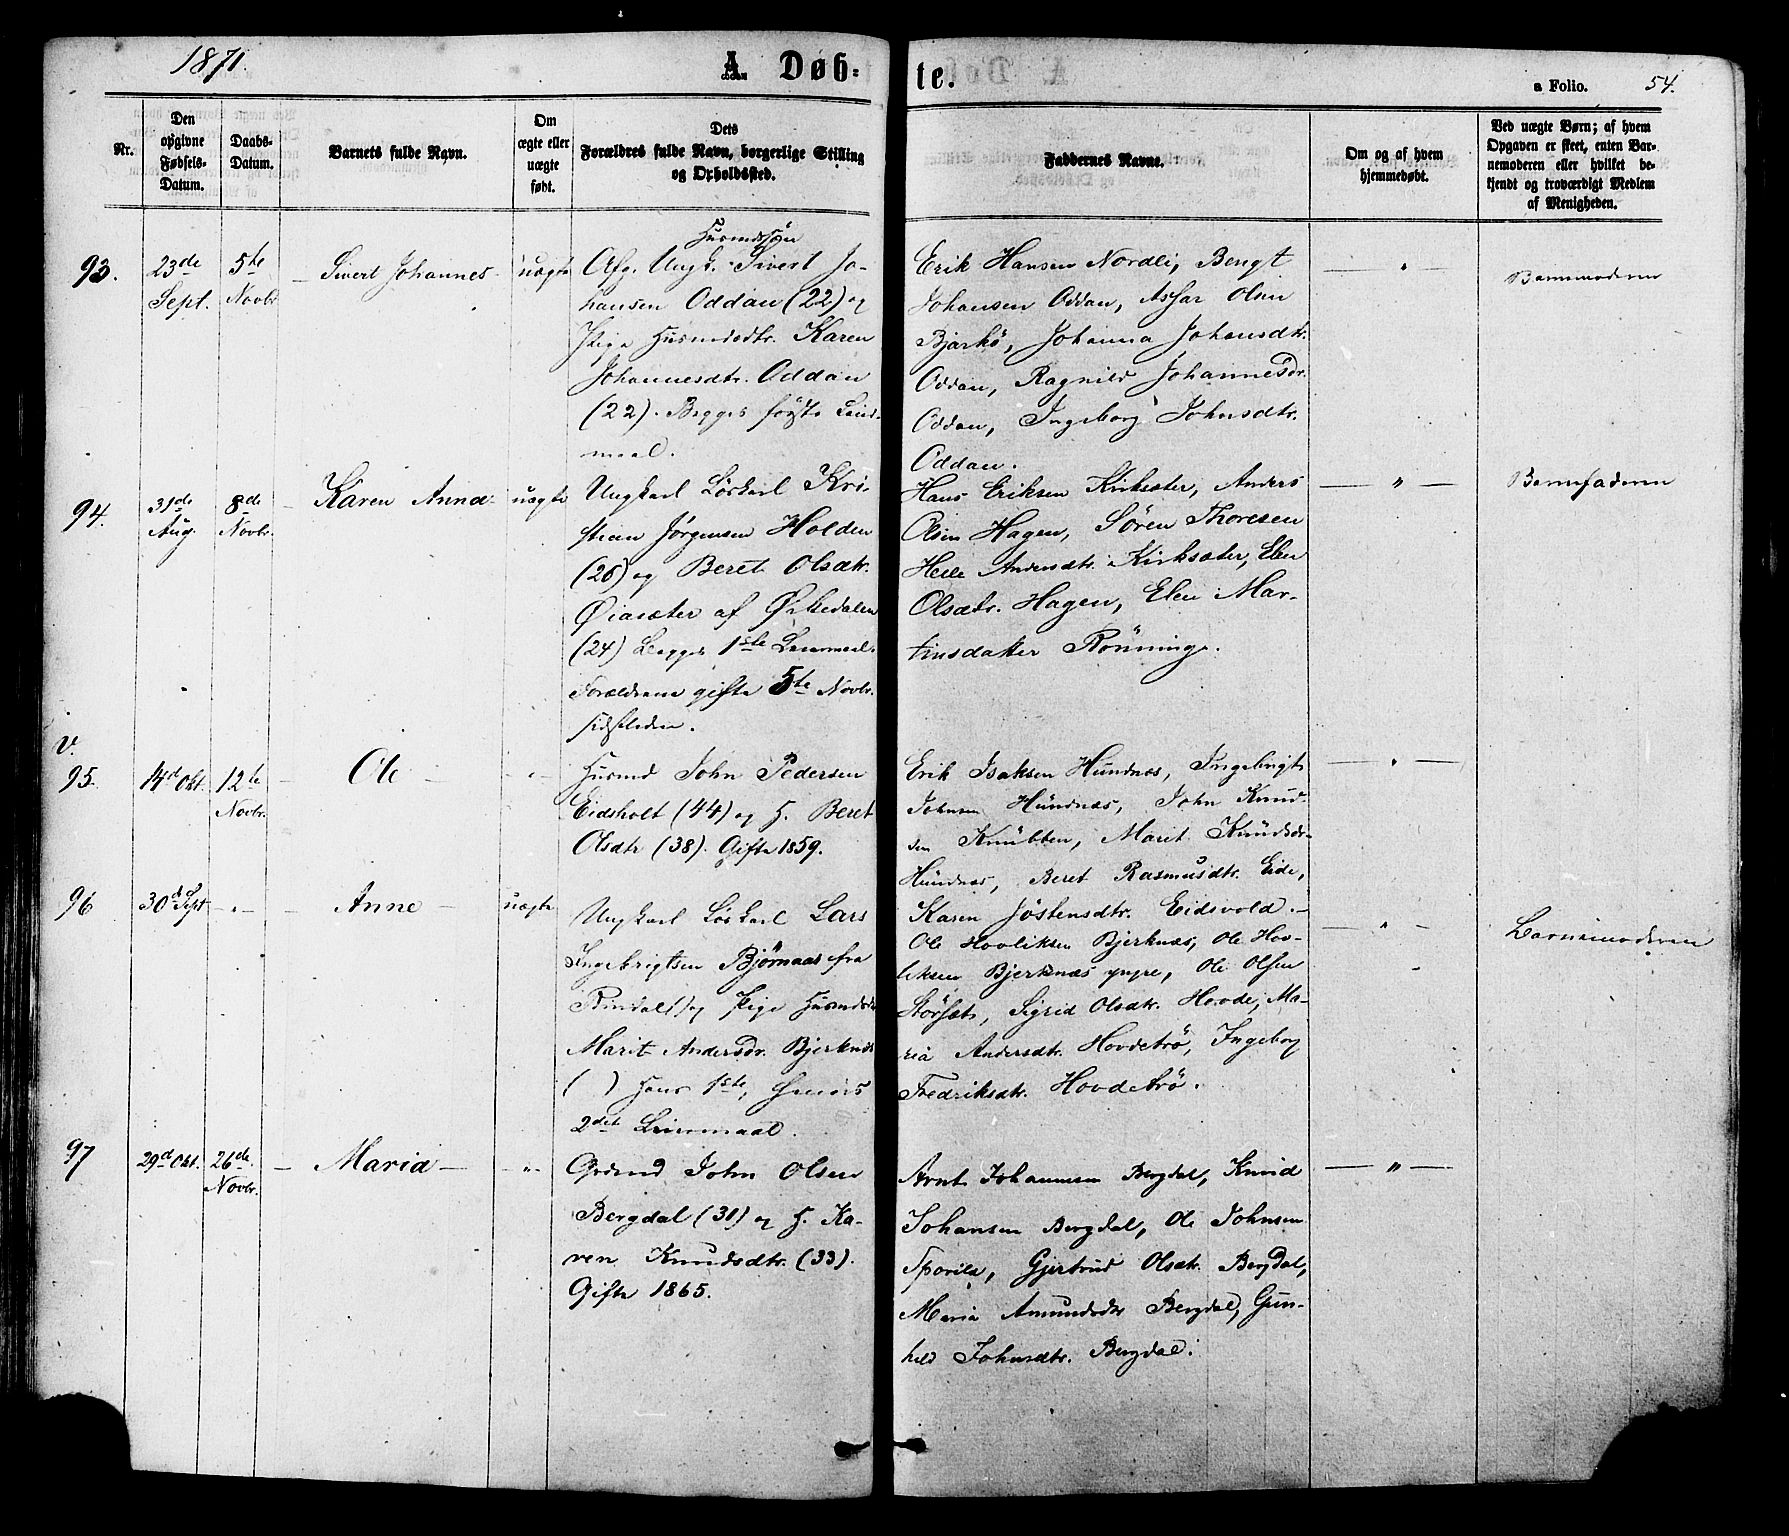 1871.
A. Døb-
te.
a Folio.
54.
Nr.
Den
opgivne
Fødsels-
Datum.
Daabs-
Datum.
Barnets fulde Navn.
Om
ægte eller
uægte
født.
Dets
Forældres fulde Navn, borgerlige Stilling
og Opholdssted.
Faddernes Navne.
Om og af hvem
hjemmedøbt.
Ved uægte Børn; af hvem
Opgaven er skeet, enten Bar-
nemoderen eller hvilket be-
kjendt og troværdigt Medlem
af Menigheden.
93.
23de
Sept.
5te
Novbr
Sivert Johannes
uægte
Husmdssøn
Afg. Ungk. Sivert Jo-
hansen Oddan (22) og
Pige Husmdsdtr. Karen
Johannesdtr. Oddan
(22). Begges første Leier-
maal.
Erik Hansen Nordli, Bengt
Johansen Oddan, Olsen
Bjarkø, Johanna Johansdtr.
Oddan, Ragnild Johannesdr.
Oddan, Ingeborg Johnsdtr.
Oddan.
— " —
Barnemoderen
94.
31de
Aug.
8de
Novbr.
Karen Anna
uægte
Ungkarl Løskarl Kri-
stian Jørgensen Holden
(26) og Beret Olsdtr.
Øiasæter af Ørkedalen
(24) Begges 1ste Leiermaal.
Forældrene gifte 5te Novbr.
sidstleden.
Hans Eriksen Kirksæter, Anders
Olsen Hagen, Søren Thoresen
Andersdtr. Kirksæter, Elen
Olsdtr. Hagen, Elen Mar-
tinsdatter Rønninge.
— " —
Barnefaderen
V.
95.
14d Okt.
12te
Novbr.
Ole
"
Husmd John Pedersen
Eidsholt (44) og H. Beret
Olsdtr (38). Gifte 1859.
Erik Isaksen Hundnæs, Ingebrigt
Johnsen Hundnæs, John Knud-
sen Knubben, Marit Knudsdr.
Hundnæs, Beret Rasmusdtr. Eide,
Karen Jøstensdtr. Eidsvold.
— " —
96
30d Sept
"
Anne
uægte
Ungkarl Løskarl Lars
Ingebrigtsen Bjørnaas fra
Rindal () og Pige Husmdsdr
Marit Andersdr. Bjerknæs
( ) Hans 1ste, hendes
2det Leiermaal.
Ole Hovliksen Bjerknæs, Ole Hov-
liksen Bjerknæs yngre, Ole Olsen
Størset, Sigrid Olsdtr. Hovde, Ma-
ria Andersdtr. Hovdetrø, Ingeborg
Fredriksdtr. Hovdetrø.
— " —
Barnemoderen
97
29d Okt.
26de
Novbr.
Maria
"
Grdmd John Olsen
Bergdal (31) og H. Ka-
ren Knudsdtr. (33).
Gifte 1865.
Arnt Johannesen Bergdal, Knud
Johansen Bergdal, Ole Johnsen
Sporild, Gjertrud Olsdtr. Bergdal,
Maria Amundsdtr Bergdal, Gun-
hild Johnsdtr. Bergdal.
— " —